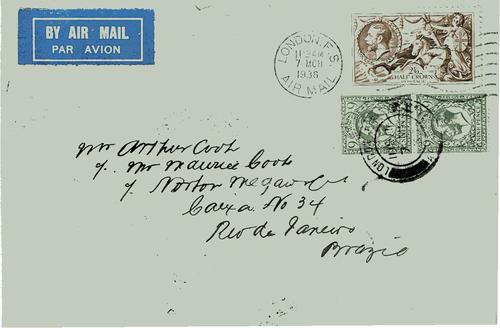 BY AIR MAIL
PAR AVION
LONDON F.S.
7 MCH
1936
AIR MAIL
2/6
HALF CROWN
Mr Arthur Cook
c/o Mr Maurice Cook
c/o Norton Megaw &
Caixa No 34
Rio de Janeiro
Brazil